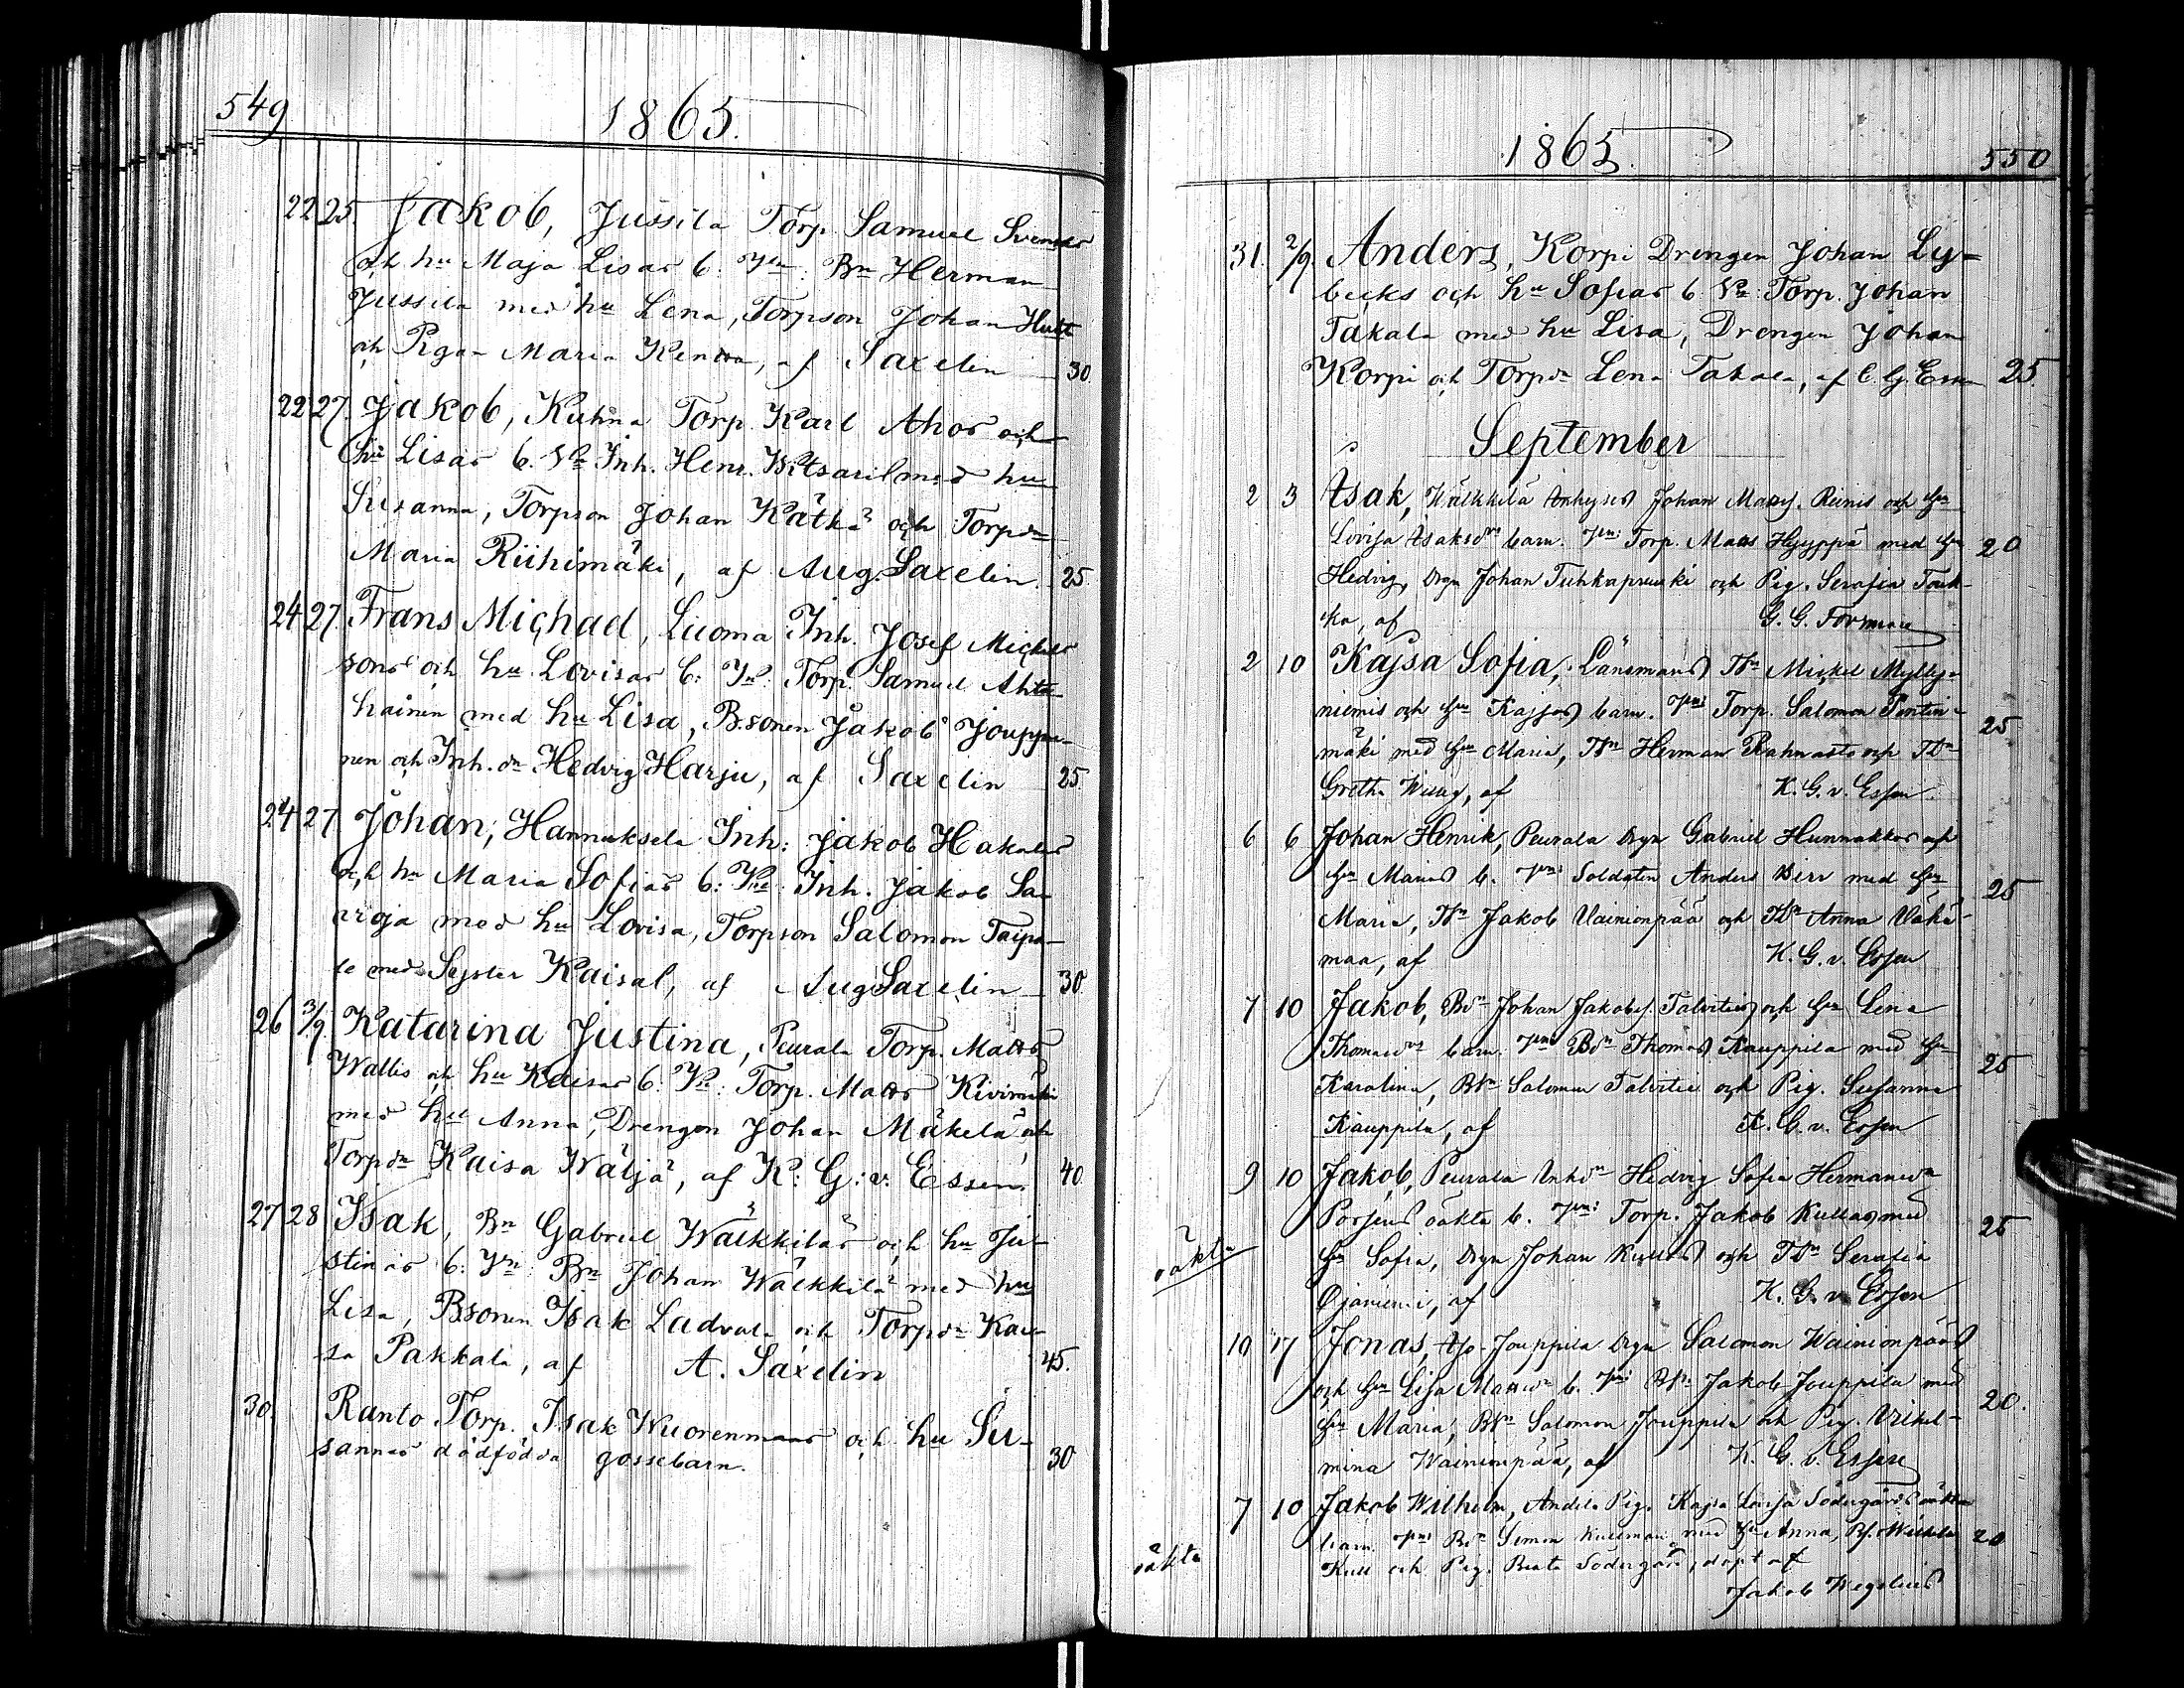 549
1865.
22 25. Jakob, Jussila Torp. Samuel Svens
och hu Maja Lisas b. Vn: Bn Herman
Jussila med hu Lena, Torpson Johan Hult
och Pigan Maria, af Saxelin 30.
22 27. Jakob, Kuhna Torp. Karl Ahos och
hu Lisas b. Vn Inh. Henr. med hu
Susanna, Torpson Johan Kätkä och Torpdn
Maria Riihimäki, af Aug. Saxelin. 25.
24 27. Frans Michael, Luoma Inh. Josef Michels
sons och hu Lovisas b: Vn: Torp. Samuel Ahta-
hainen med hu Lisa, B.sonen Jakob Jouppi-
nen och Inh. dn Hedvig Harju, af Saxelin 25.
24 27. Johan, Hannuksela Inh: Jakob Hakalas
och hu Maria Sofias b: Vn: Inh. Jakob Sa-
med hu Lovisa, Torpson Salomon Taipa-
le med Syster Kaisa, af Aug Saxelin 30.
26 3/9. Katarina Justina, Peurala Torp. Matts
Wallis och hu Kaisas b: Vn: Torp. Matts Kivimäki
med hu Anna, Drengen Johan Mäkelä och
Torpdn Kaisa Wäljä, af K: G: v. Essen. 40.
27 28 Isak, Bn Gabriel Wälkkiläs och hu Ju-
stinas b: Vn: Bn Johan Wälkkilä med hu
Lisa, B.sonen Isak Ladvala och Torpdn Kai-
sa Pakkala, af A. Saxelin 45.
30. Ranto Torp. Isak Wuorenmaas och hu Su-
sannas dödfödda gossebarn. 30
1865.
550
31. 2/9. Anders, Korpi Drengen Johan Ly-
becks och hu Sofias b. Vn: Torp. Johan
Takala med hu Lisa, Drengen Johan
Korpi och Torpdn Lena Takala, af C. G. Essen 25.
September
2 3 Isak, Wälkkilä Johan Matts. Reinis och hu
Lovisa Isaksdrs barn. Vn: Torp. Matts Hyyppä med hu 20
Hedvig, Drgn Johan Tuhkapruuki och Pig. Serafia Tark-
ka, af G. G. Forsman
2 10 Kajsa Sofia, Länsmans Tsn Mickel Mylly-
niemis och hu Kajsas barn. Vn: Torp. Salomon Pentin- 25
mäki med hu Maria, Tsn Herman Rahnasto och Tdn
Gretha, af K. G. v. Essen.
6 6 Johan Henrik, Peurala Drgn Gabriel Hunnakkos och
hu Marias b. Vn: Soldaten Anders Birr med hu 25
Maria, Tsn Jakob Vainionpää och Tdn Anna Vähä-
maa, af K. G. v. Essen
7 10 Jakob, Bdn Johan Jakobs. Talvities och hu Lena
Thomasdrs barn. Vn: Bdn Thomas Kauppila med hu 25
Karolina, Bsn Salomon Talvitie och Pig. Susanna
Kauppila, af K. G. v. Essen
9 10 Jakob, Peurala Inhdn Hedvig Sofia Hermansdn
oäkta
Porsens oäkta b. Vn: Torp. Jakob Kullas med 25
hu Sofia, Drgn Johan Kullas och Tdn Serafia
Ojaniemi, af K. G. v. Essen
10 17 Jonas, Jouppila Drgn Salomon Wainionpääs
och hu Lisa Mattsdn b. Vn: Bsn Jakob Jouppila med 20.
hu Maria, Bsn Salomon Jouppila och Pig. Vilhel-
mina Wainionpää, af K. G. v. Essen
7 10 Jakob Wilhelm, Andila Pig. Kajsa Lovisa Södergårds oäkta
barn. Vn: Bdn Simon Kullman med hu Anna, 20
oäkta
Kull och Pig. Beata Södergård, döpt af
Jakob Wegelius